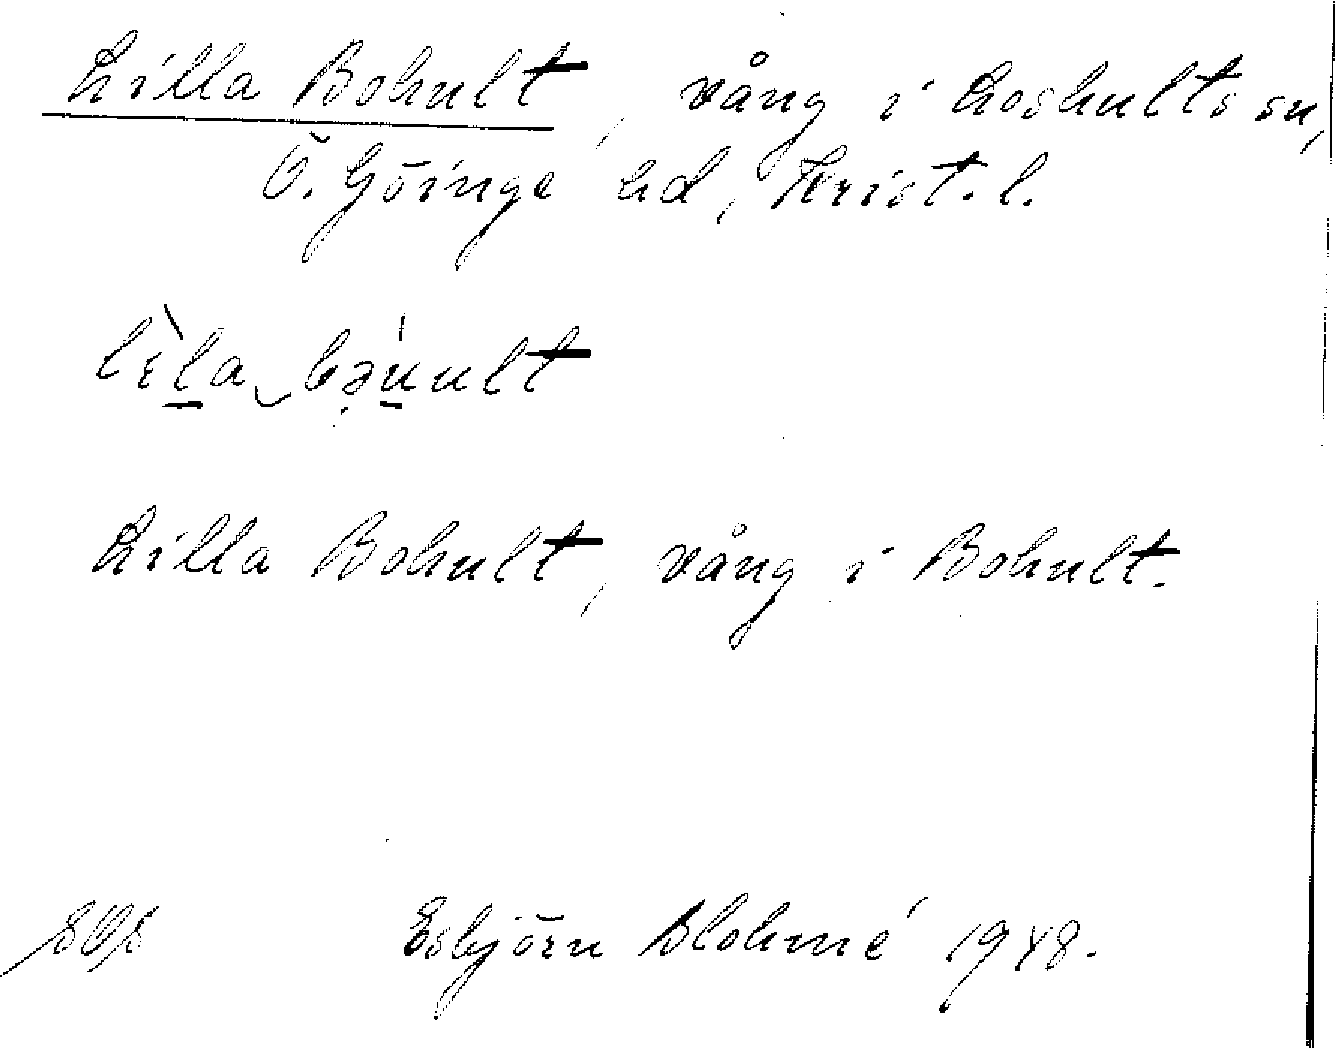 Lilla Bohult, vång i Loshults sn,
Ö. Göinge hd, Krist. l.
Lilla Bohult, vång i Bohult.
Esbjörn Blohmé 1948.